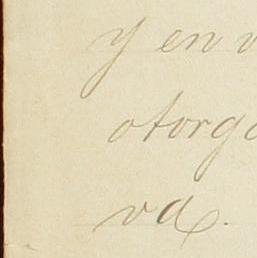 y en v
otorga
va.